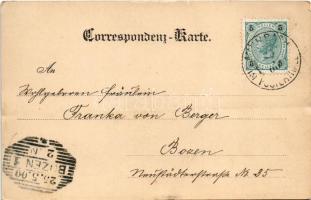 Correspondenz-Karte.
5 5
An
Wohlgeboren Fräulein
Franka von Berger
Bozen
Neustädterstraße № 25
BOZEN 1